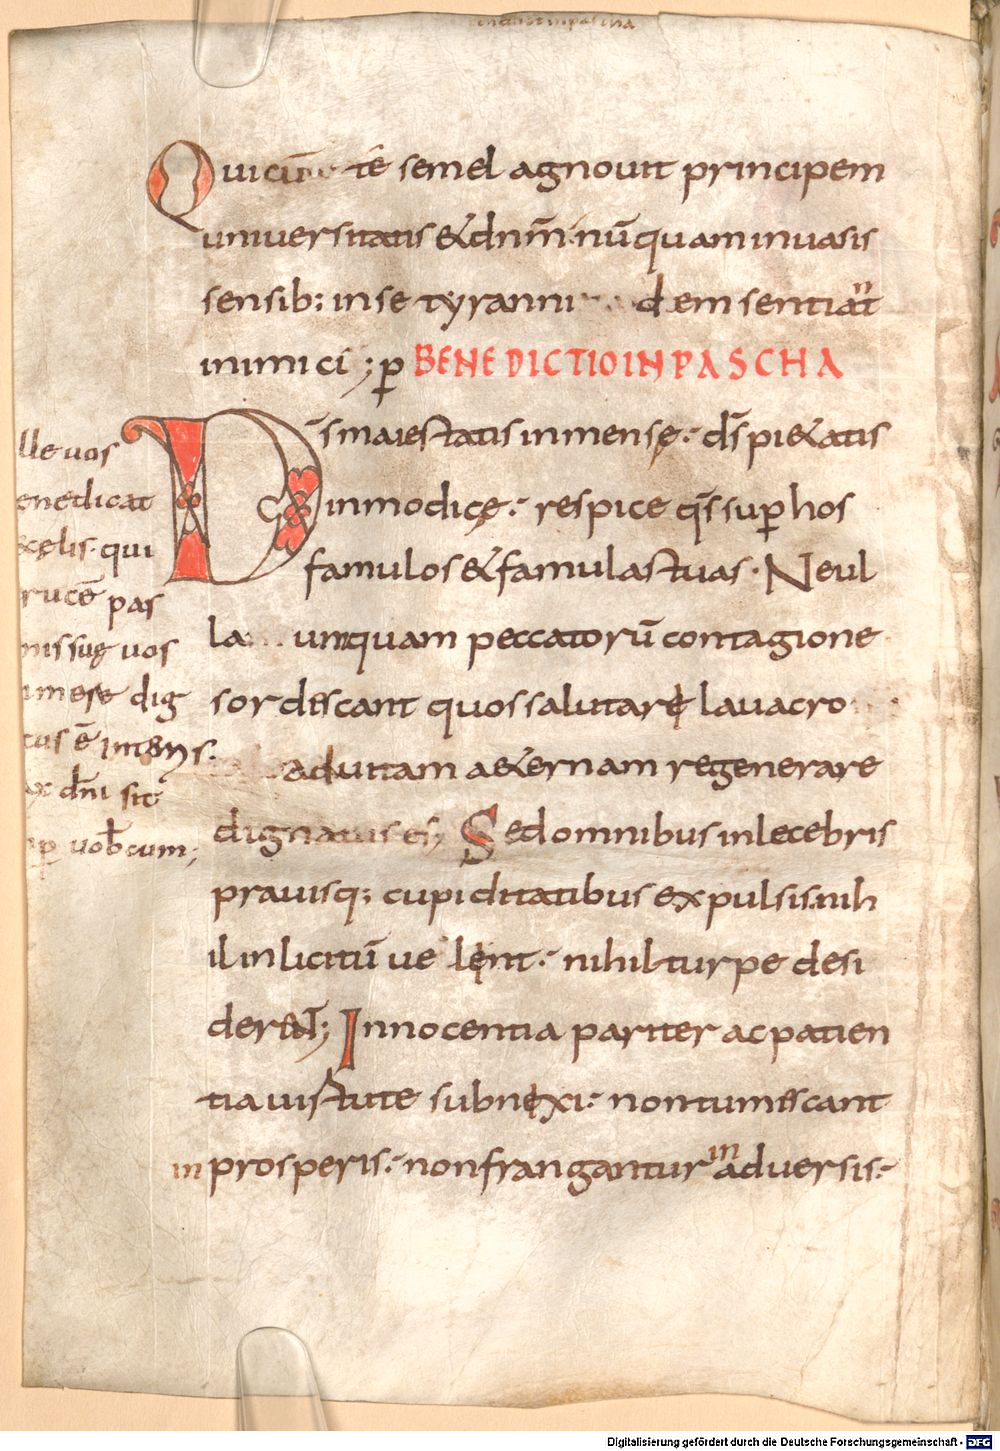 benedict in pascha
Qui cū te semel agnouit principem
uniuersitatis &dnm̄· nū quam inuasis
sensib; in se tyranni dem sentiat
inimici ; p̱ BENEDICTIO IN PASCHA
D s̄ maiestatis inmensę· ds̄ pi&atis
inmodicę· respice qs̄ sup hos
famulos &famulas tuas · Ne ul
la umquam peccatorū contagione
sordescant quos salutarę lauacro
ad uitam a&ernam regenerare
dignatus es; Sed omnibus inlecebris
prauisq; cupiditatibus expulsis. nih
il inlicitū uelęnt· nihil turpe desi
derent; Innocentia pariter ac patien
tia uirtute subnęxi· non tumescant
in prosperis· non frangantur in aduersis·
lle uos
enedicat
&cęlis· qui
rucē pas
nis suę uos
dig
tus ē
dn̄i sit
p̱ uob cum;
Digitalisierung gefördert durch die Deutsche Forschungsgemeinschaft - DFG